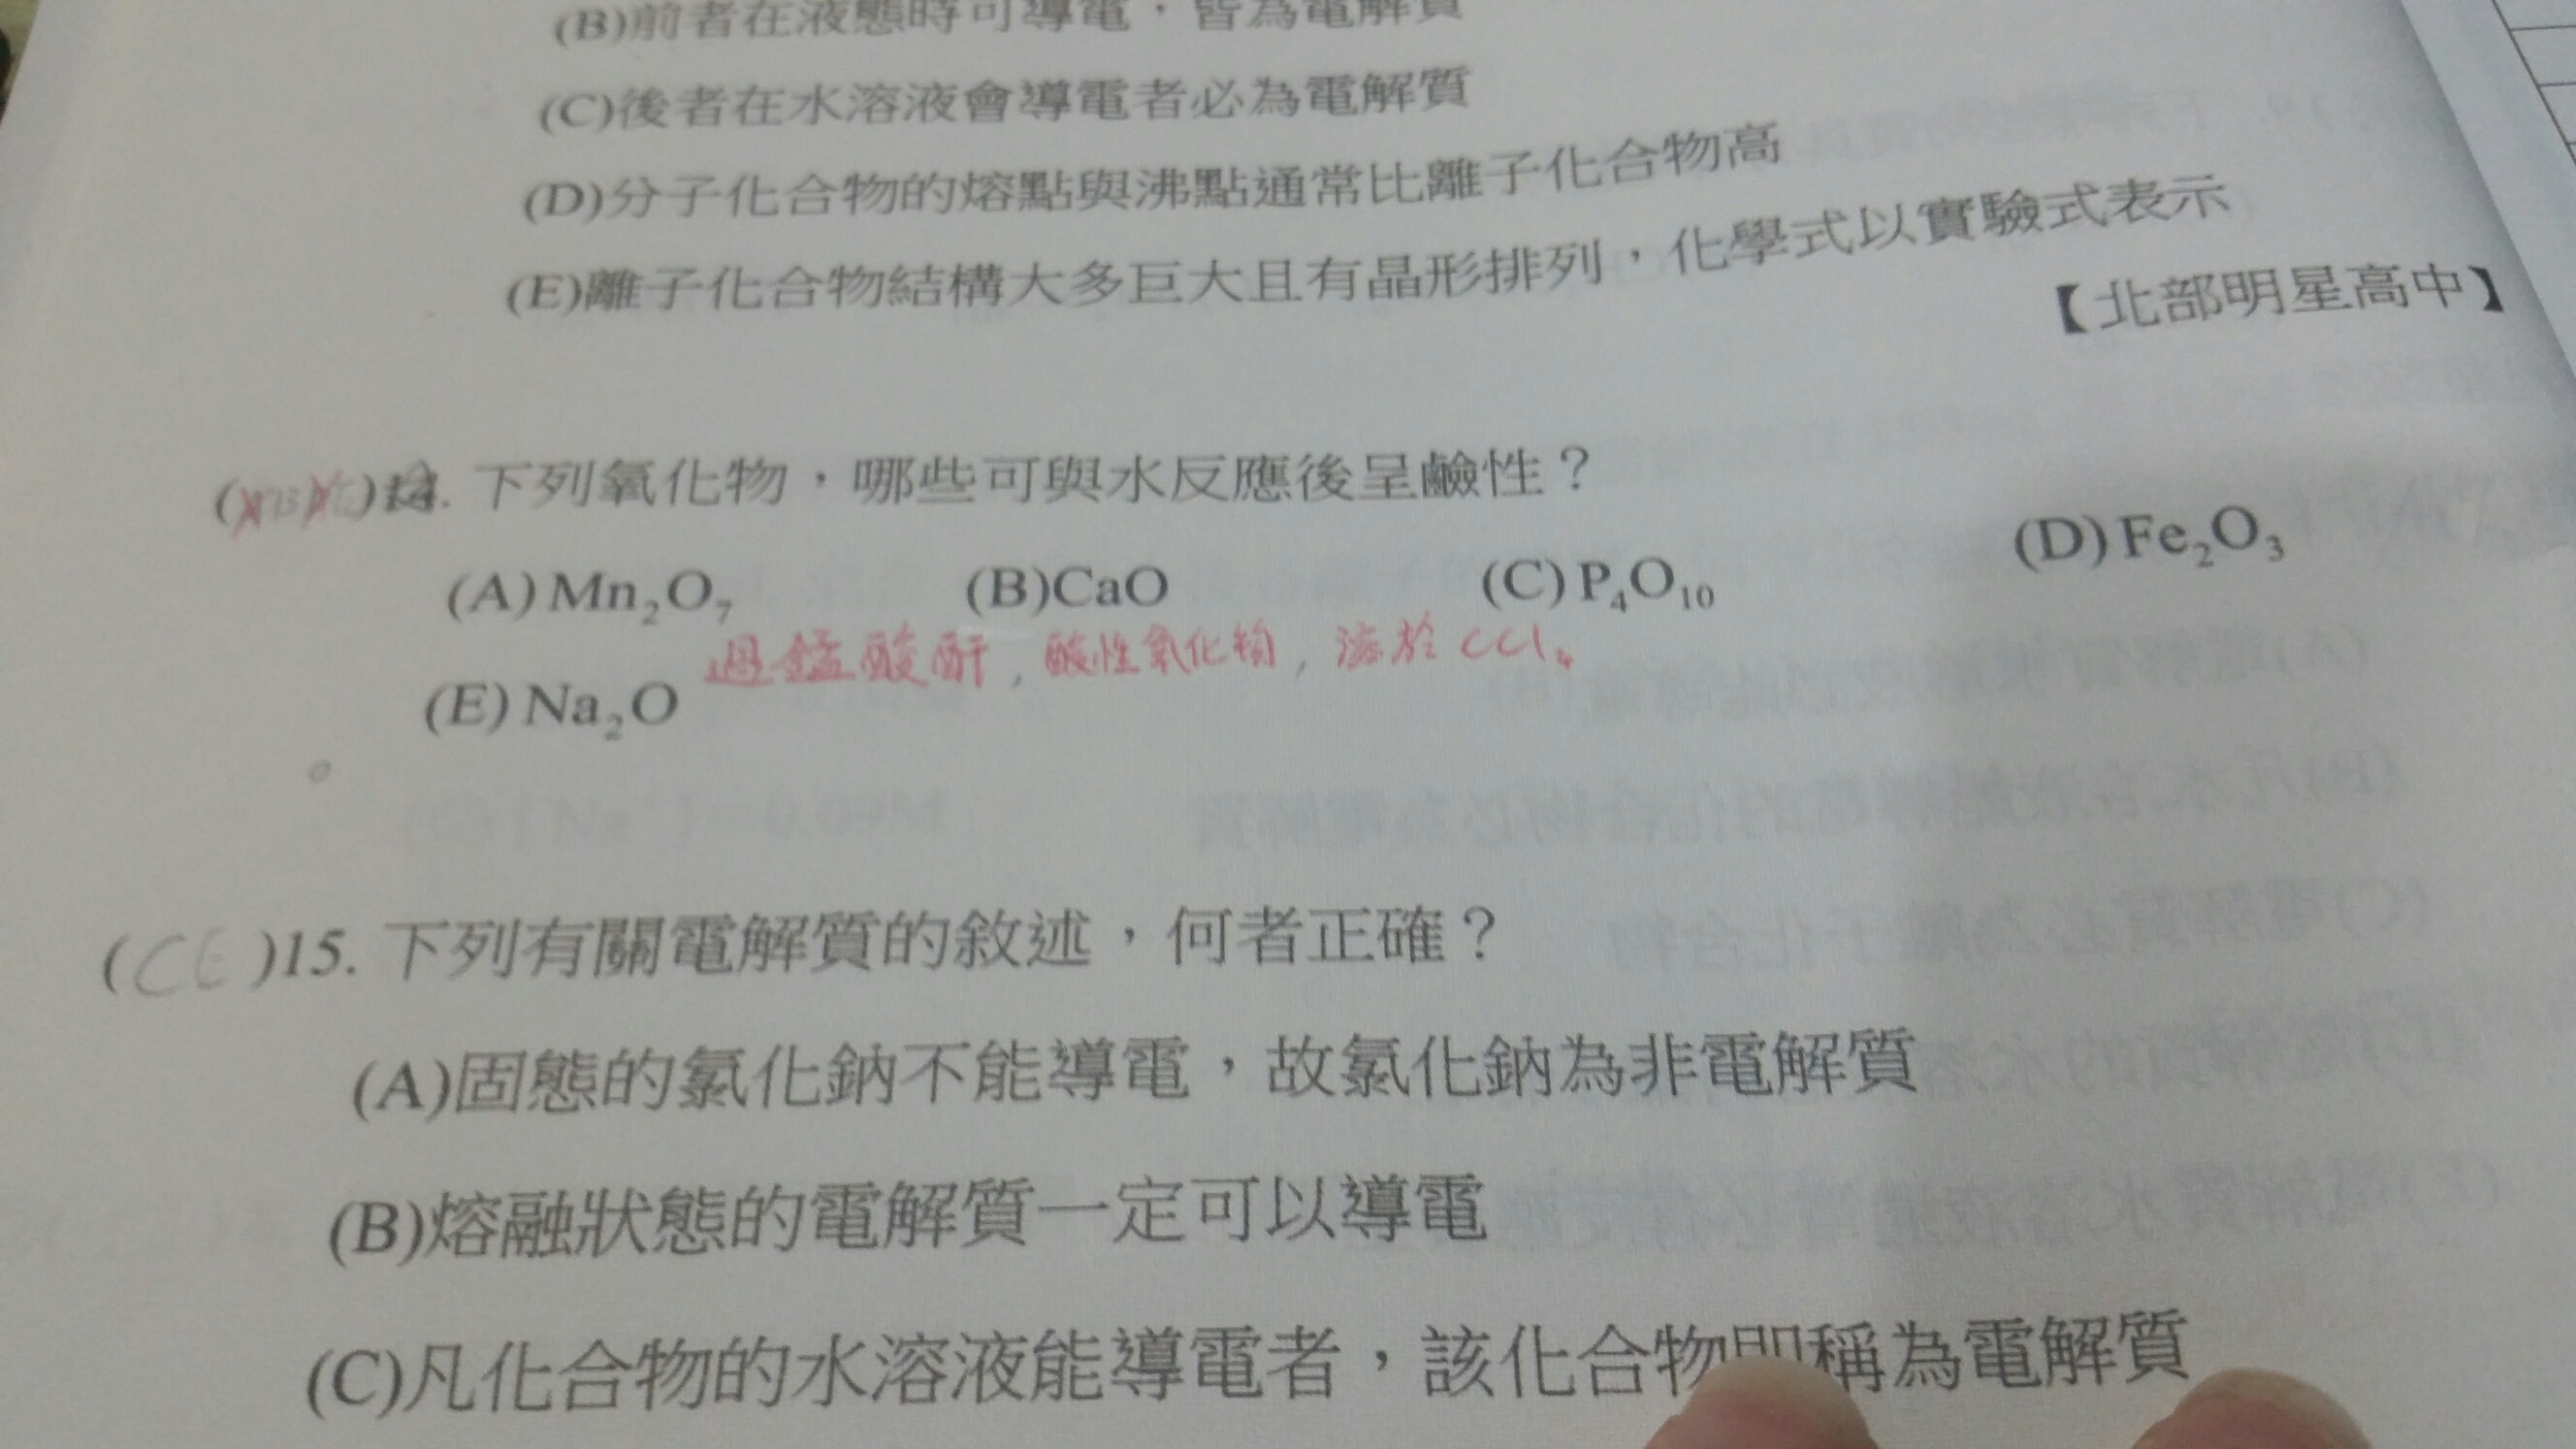 (B)前者在液態時可導電，皆為電解質
(C)後者在水溶液會導電者必為電解質
(D)分子化合物的熔點與沸點通常比離子化合物高
(E)離子化合物結構大多巨大且有晶形排列，化學式以實驗式表示
【北部明星高中】
14. 下列氧化物，哪些可與水反應後呈鹼性？
(A) Mn₂O₇ (B)CaO (C) P₄O₁₀ (D) Fe₂O₃
過錳酸酐，酸性氧化物，溶於 CCl₄
(E) Na₂O
(CE)15. 下列有關電解質的敘述，何者正確？
(A)固態的氯化鈉不能導電，故氯化鈉為非電解質
(B)熔融狀態的電解質一定可以導電
(C)凡化合物的水溶液能導電者，該化合物即稱為電解質